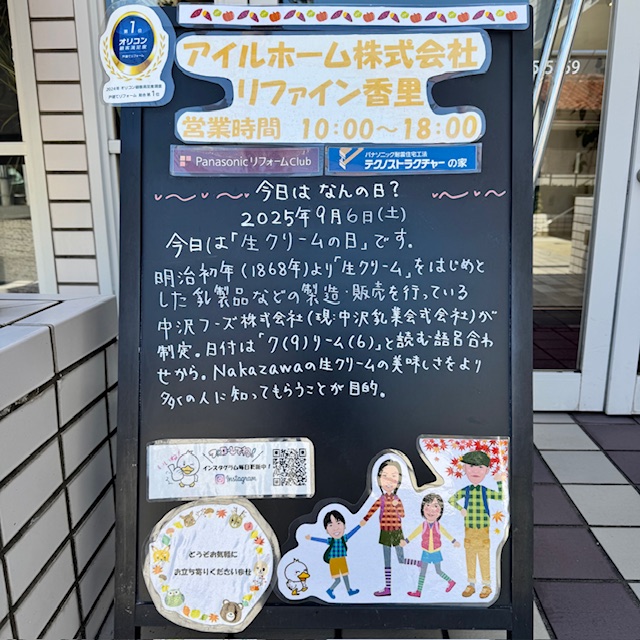 第1位
オリコン
顧客満足度
戸建てリフォーム
アイルホーム株式会社
リファイン香里
営業時間 10:00～18:00
PanasonicリフォームClub
パナソニック耐震住宅工法
テクノストラクチャーの家
今日は なんの日？
2025年9月6日(土)
今日は「生クリームの日」です。
明治初年(1868年)より「生クリーム」をはじめと
した乳製品などの製造・販売を行っている
中沢フーズ株式会社(現:中沢乳業会式会社)が
制定。日付は「ク(9)リーム(6)」と読む語呂合わ
せから。Nakazawaの生クリームの美味しさをより
多くの人に知ってもらうことが目的。
インスタグラム毎日更新中！
Instagram
どうぞお気軽に
お立ち寄りくださいませ